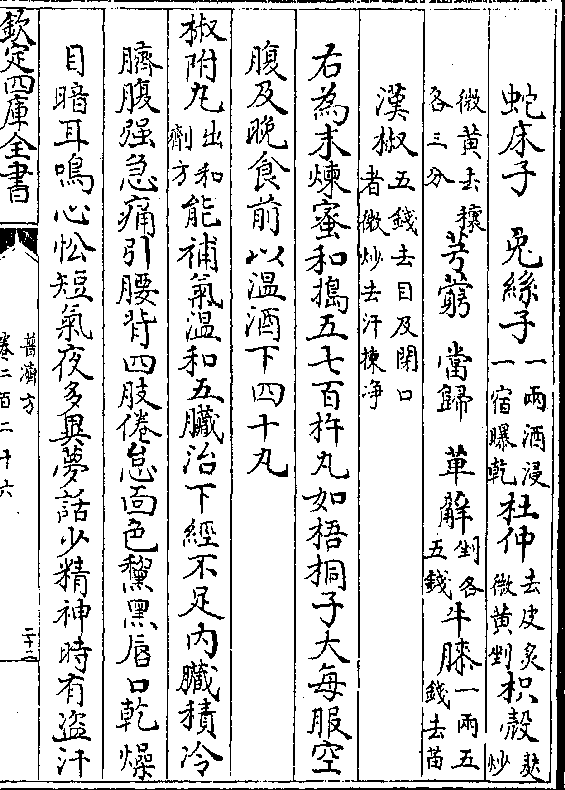 蛇床子 兔絲子一兩酒浸一宿曝乾杜仲去皮炙微黄剉枳殼麩炒
微黄去穰各三分芎藭 當歸 萆薢剉各五錢牛膝一兩五錢去苗
漢椒五錢去目及閉口者微炒去汗揀净
右為末煉蜜和搗五七百杵丸如梧桐子大每服空
腹及晚食前以温酒下四十丸
椒附丸出和劑方能補氣温和五臟治下經不足内臟積冷
臍腹强急痛引腰背四肢倦怠面色黧黑唇口乾燥
目暗耳鳴心忪短氣夜多異夢話少精神時有盗汗
欽定四庫全書
普濟方
卷二百二十六